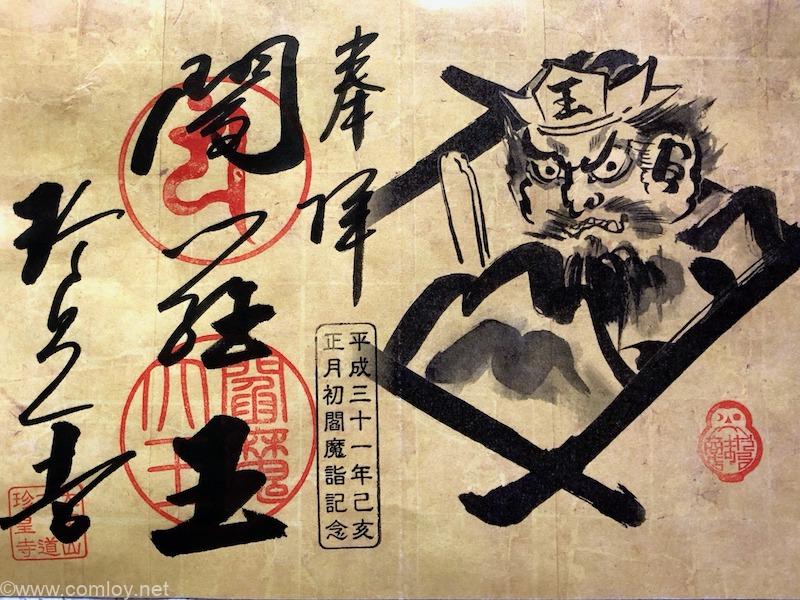 王
奉拝
平成三十一年己亥
正月初閻魔詣記念
閻羅王
閻魔
大王
珍皇寺
珍皇寺
©www.comloy.net